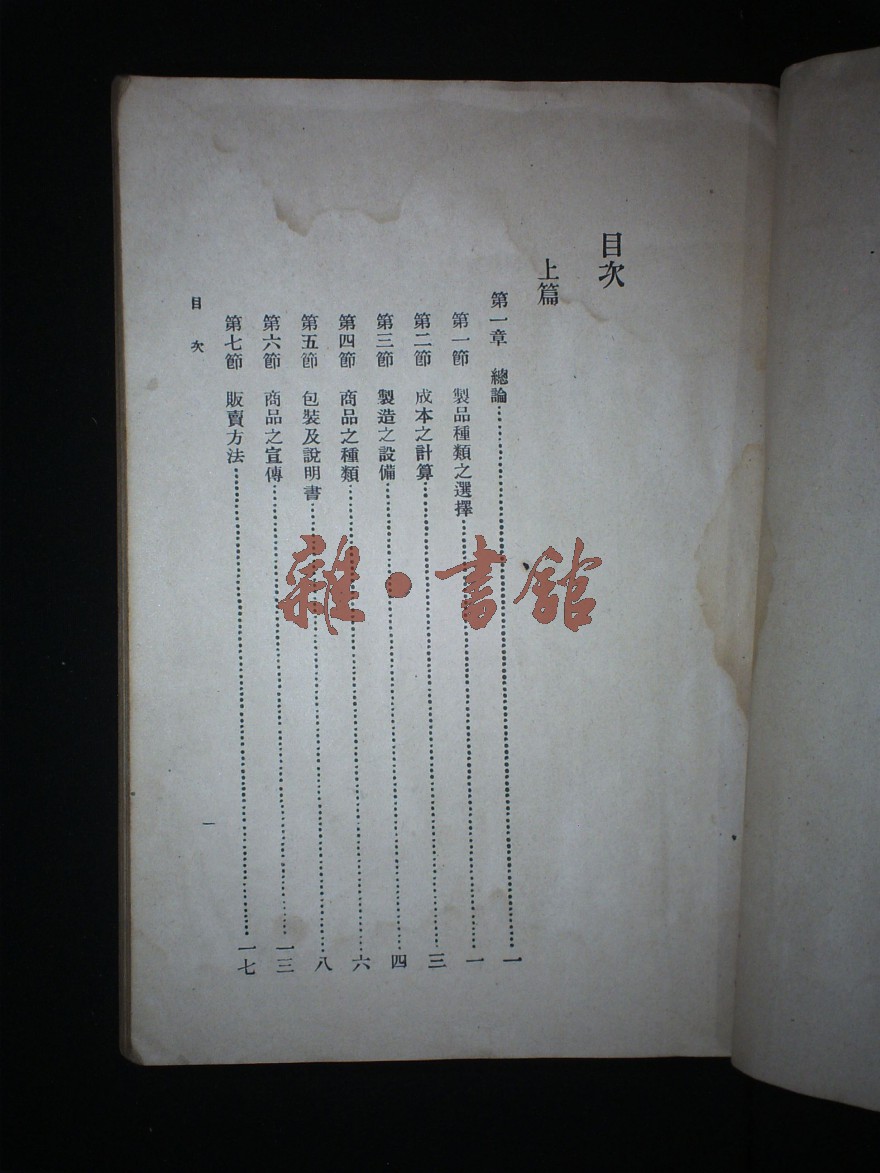 目次
上篇
第一章 總論……一
第一節 製品種類之選擇……一
第二節 成本之計算……三
第三節 製造之設備……四
第四節 商品之種類……六
第五節 包裝及說明書……八
第六節 商品之宣傳……一三
第七節 販賣方法……一七
目次
一
雜·書館